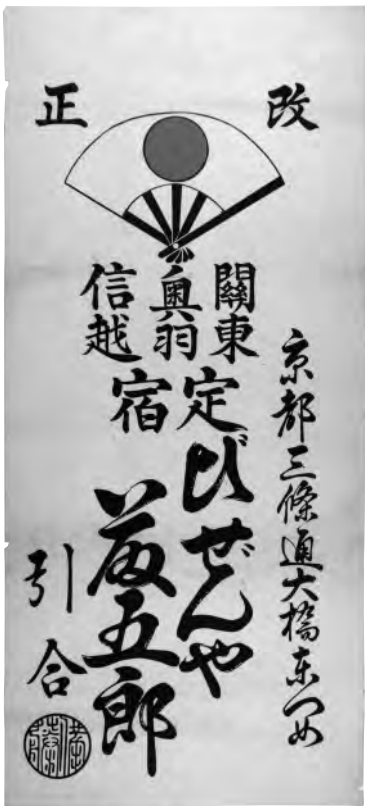 改正
京都三條通大橋東つめ
關東
奥羽
信越
定宿
びぜんや
五郎
引合